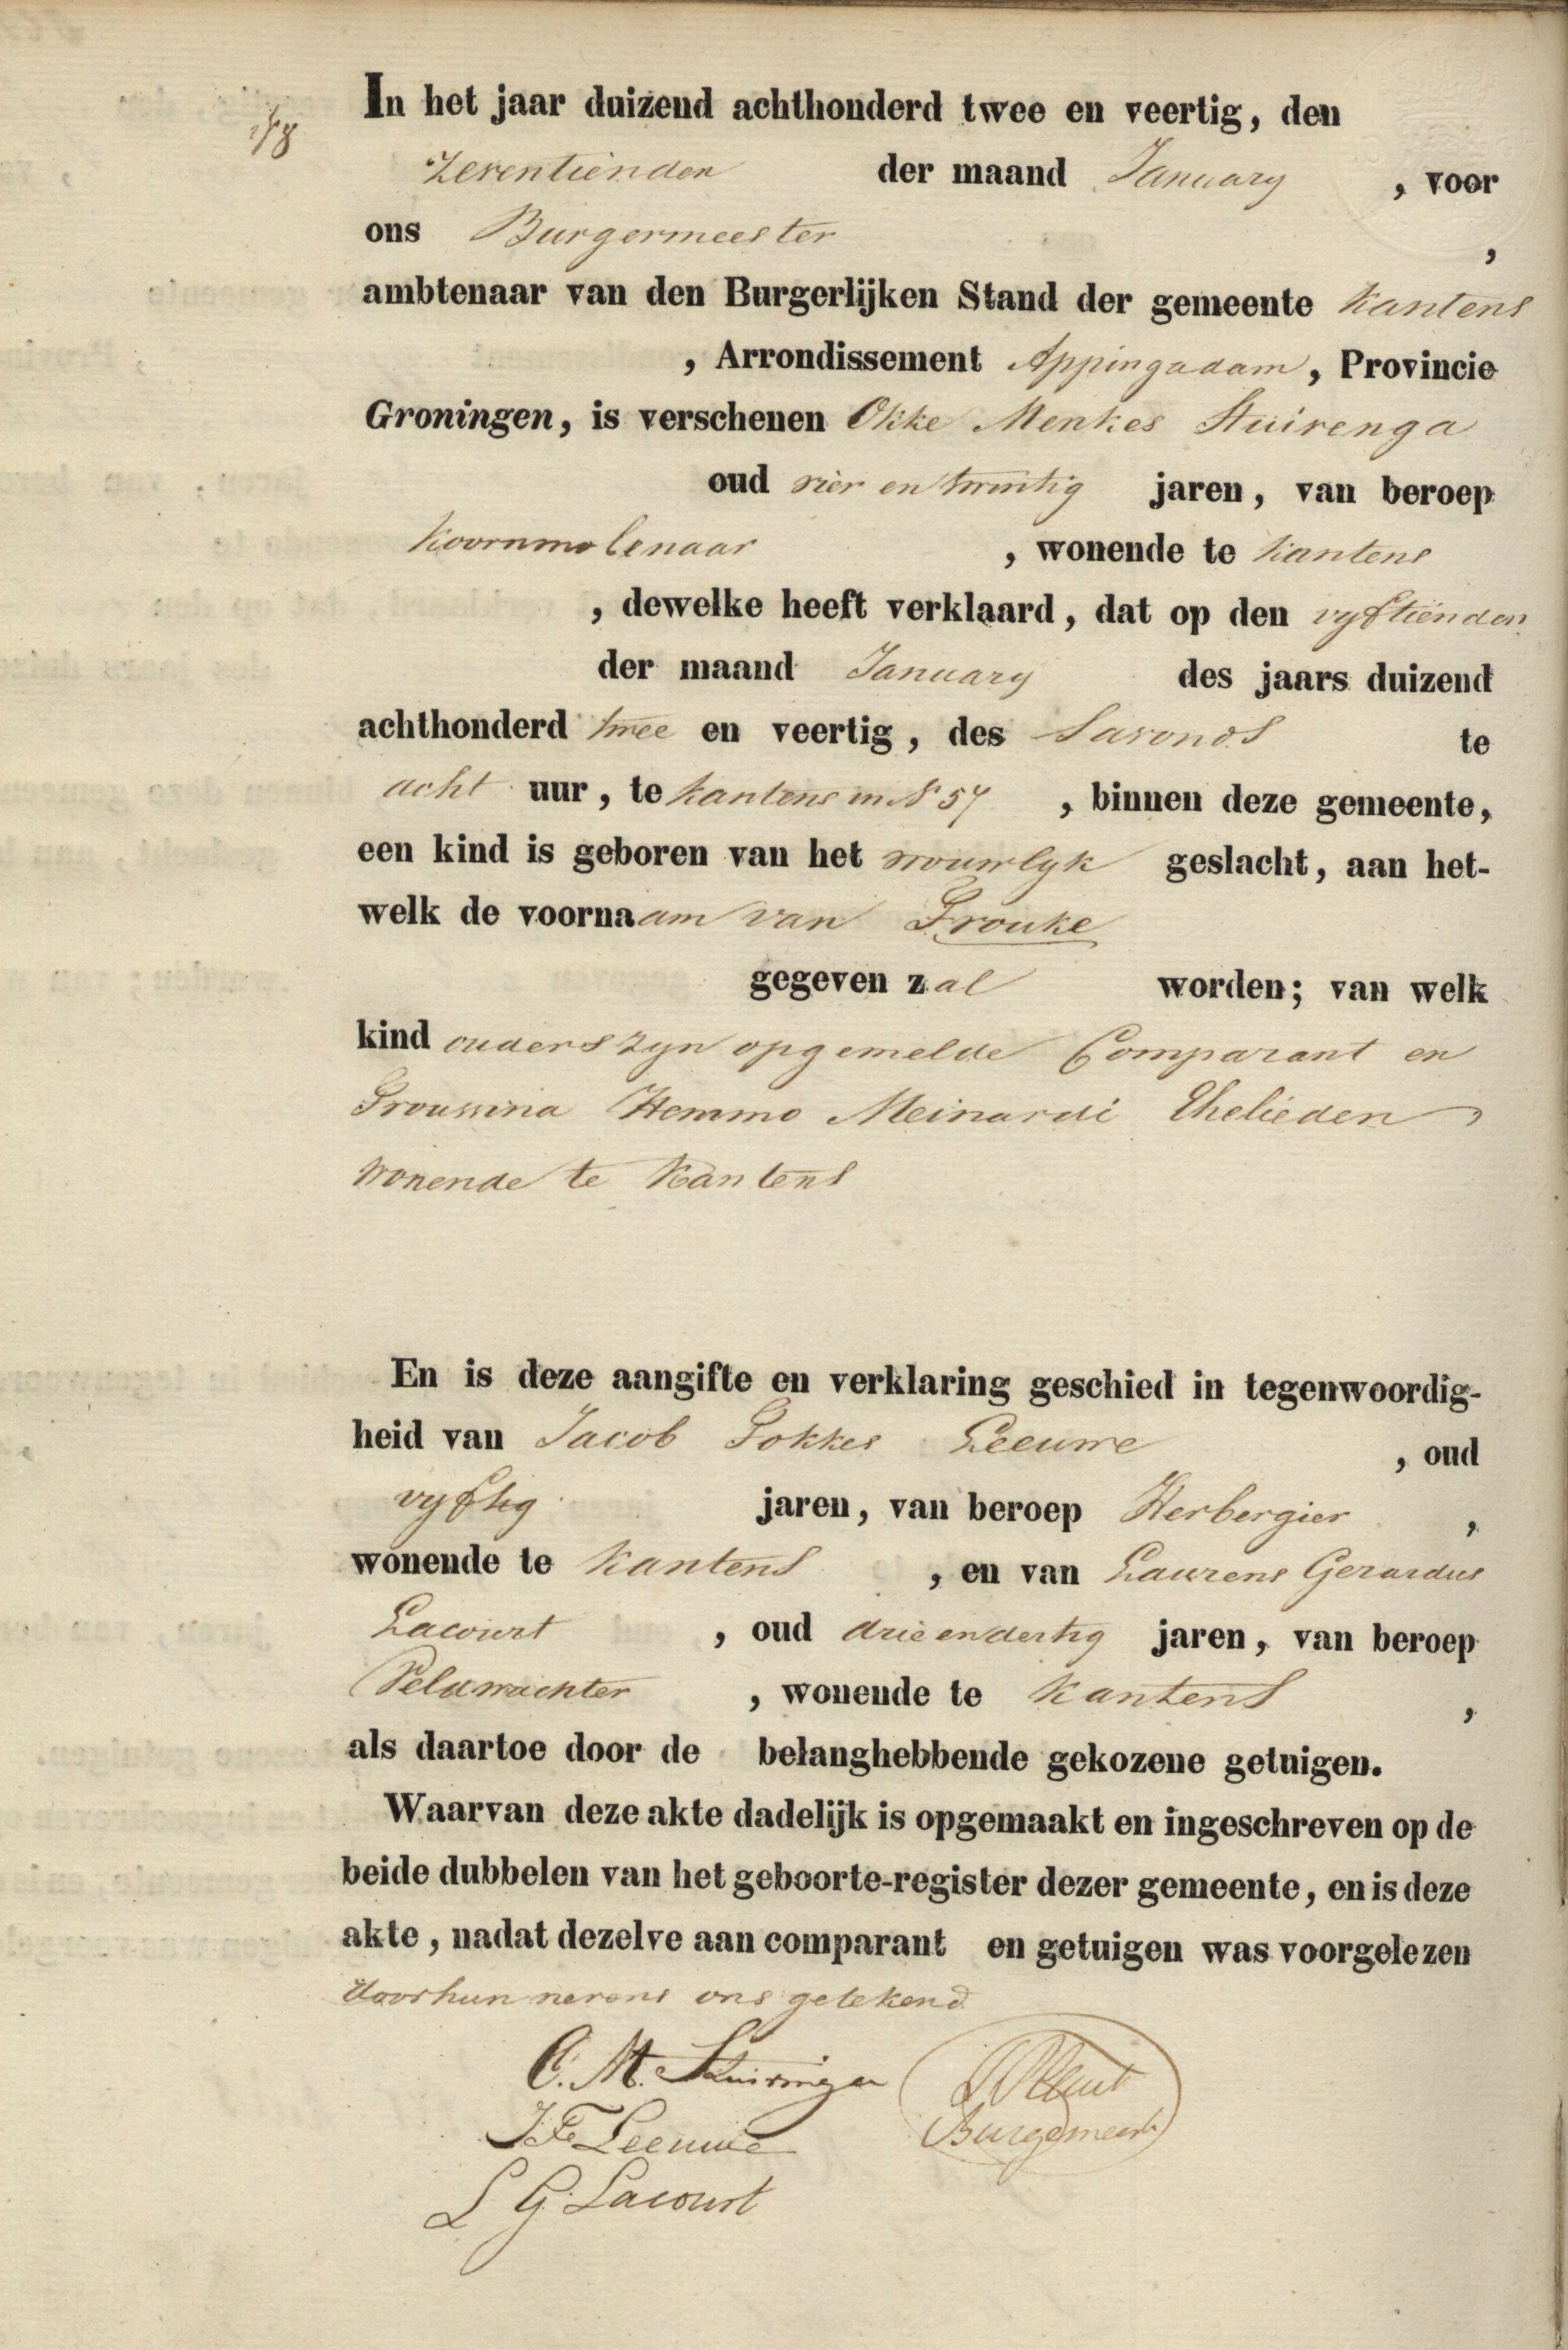 In het jaar duizend achthonderd twee en veertig, den
zeventienden der maand January, voor
ons Burgermeester,
ambtenaar van den Burgerlijken Stand der gemeente Kantens
, Arrondissement Appingadam, Provincie
Groningen, is verschenen Okke Menkes Stuivenga
oud vier en twintig jaren, van beroep
Koornmolenaar, wonende te Kantens
, dewelke heeft verklaard, dat op den vyftienden
der maand January des jaars duizend
achthonderd twee en veertig, des Savonds te
acht uur, te Kantens in N° 57, binnen deze gemeente,
een kind is geboren van het vrouwlyk geslacht, aan het-
welk de voornaam van Frouke
gegeven zal worden; van welk
kind ouders zyn opgemelde Comparant en
Frouwina Hemmo Meinardi Ehelieden,
wonende te Kantens
En is deze aangifte en verklaring geschied in tegenwoordig-
heid van Jacob Fokkes Leeuwe, oud
vyftig jaren, van beroep Herbergier,
wonende te Kantens, en van Laurens Gerardus
Lacourt, oud drie en dertig jaren, van beroep
Veldwachter, wonende te Kantens,
als daartoe door de belanghebbende gekozene getuigen.
Waarvan deze akte dadelijk is opgemaakt en ingeschreven op de
beide dubbelen van het geboorte-register dezer gemeente, en is deze
akte, nadat dezelve aan comparant en getuigen was voorgelezen
door hun nevens ons getekend
O. M. Stuivinga
J F Leeuwe
Burgemeest
L G. Lacourt